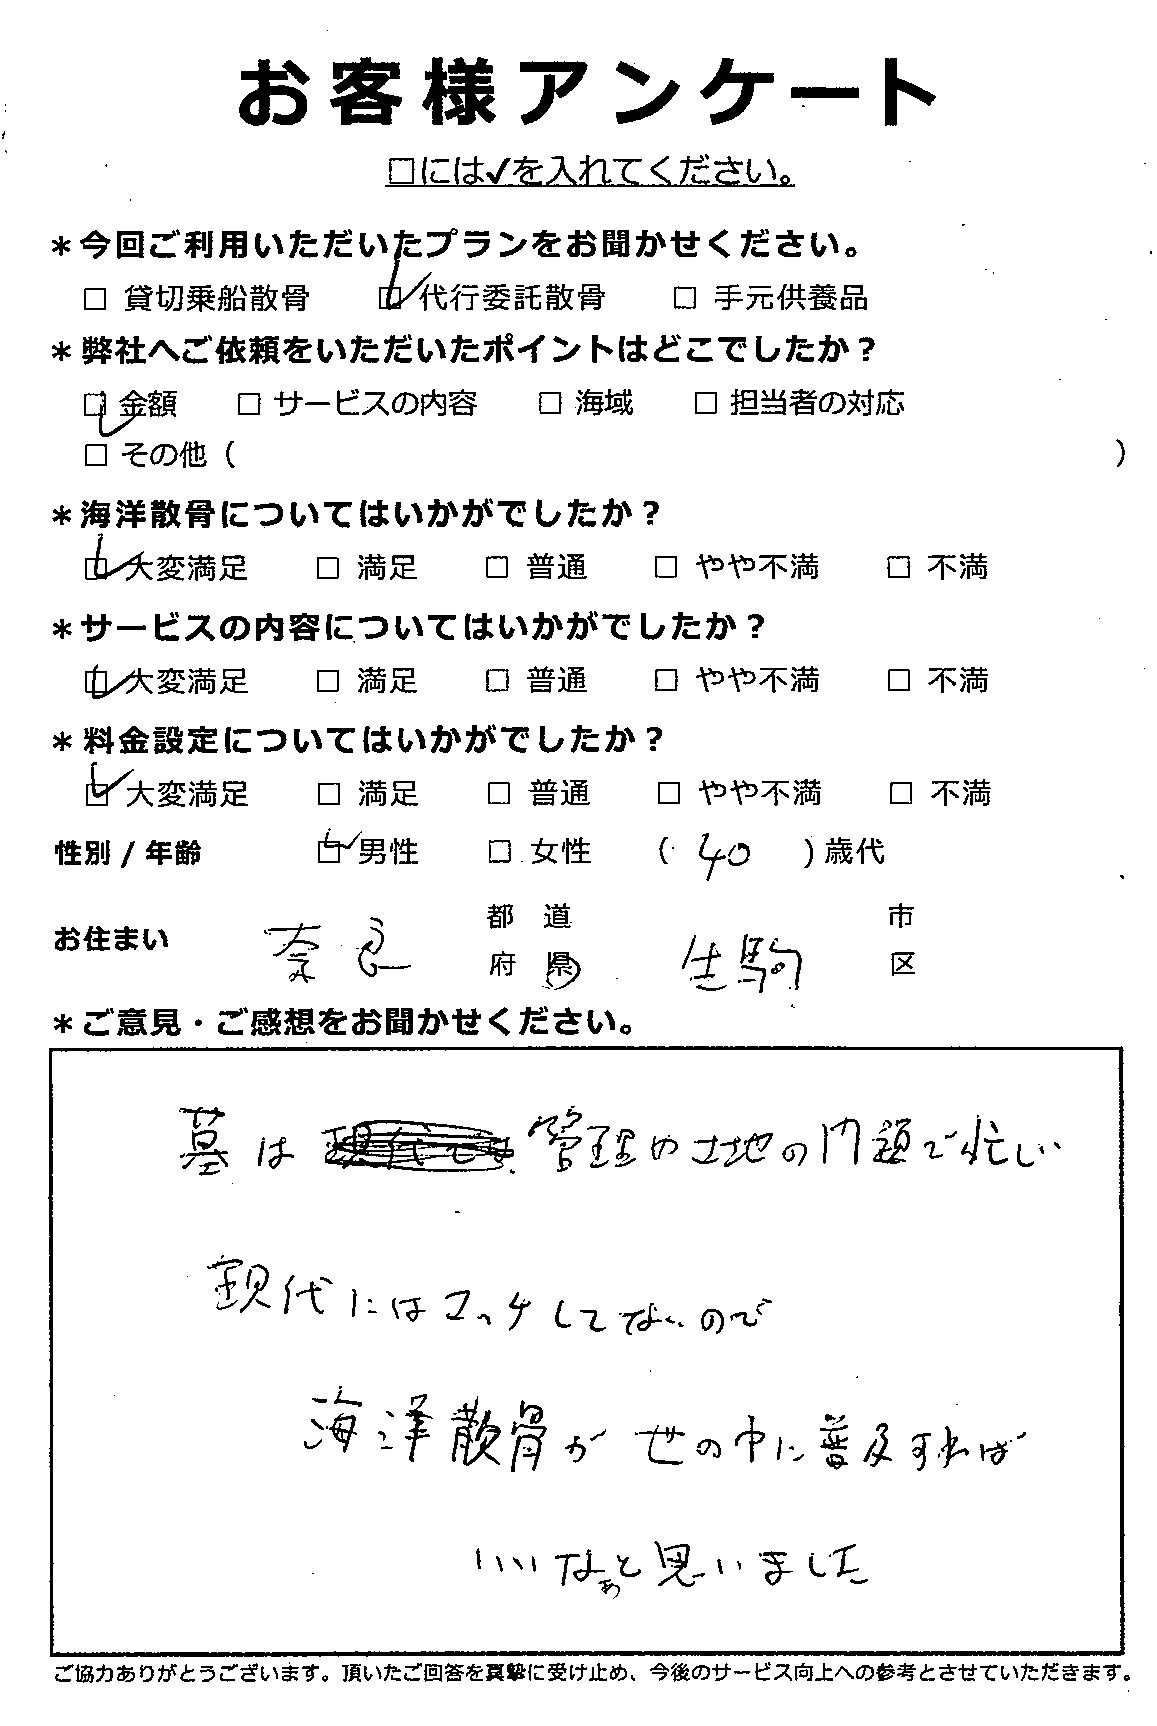 お客様アンケート
□には✓を入れてください。
＊今回ご利用いただいたプランをお聞かせください。
□ 貸切乗船散骨 ☑ 代行委託散骨 □ 手元供養品
＊弊社へご依頼をいただいたポイントはどこでしたか？
☑ 金額 □ サービスの内容 □ 海域 □ 担当者の対応
□ その他（ ）
＊海洋散骨についてはいかがでしたか？
☑ 大変満足 □ 満足 □ 普通 □ やや不満 □ 不満
＊サービスの内容についてはいかがでしたか？
☑ 大変満足 □ 満足 □ 普通 □ やや不満 □ 不満
＊料金設定についてはいかがでしたか？
☑ 大変満足 □ 満足 □ 普通 □ やや不満 □ 不満
性別 / 年齢 ☑ 男性 □ 女性 （ 40 ）歳代
都 道 市
お住まい 奈良 生駒
府 県 区
＊ご意見・ご感想をお聞かせください。
墓は 管理や土地の問題で忙しい
現代にはマッチしてないので
海洋散骨が世の中に普及すれば
いいなぁと思いました
ご協力ありがとうございます。頂いたご回答を真摯に受け止め、今後のサービス向上への参考とさせていただきます。